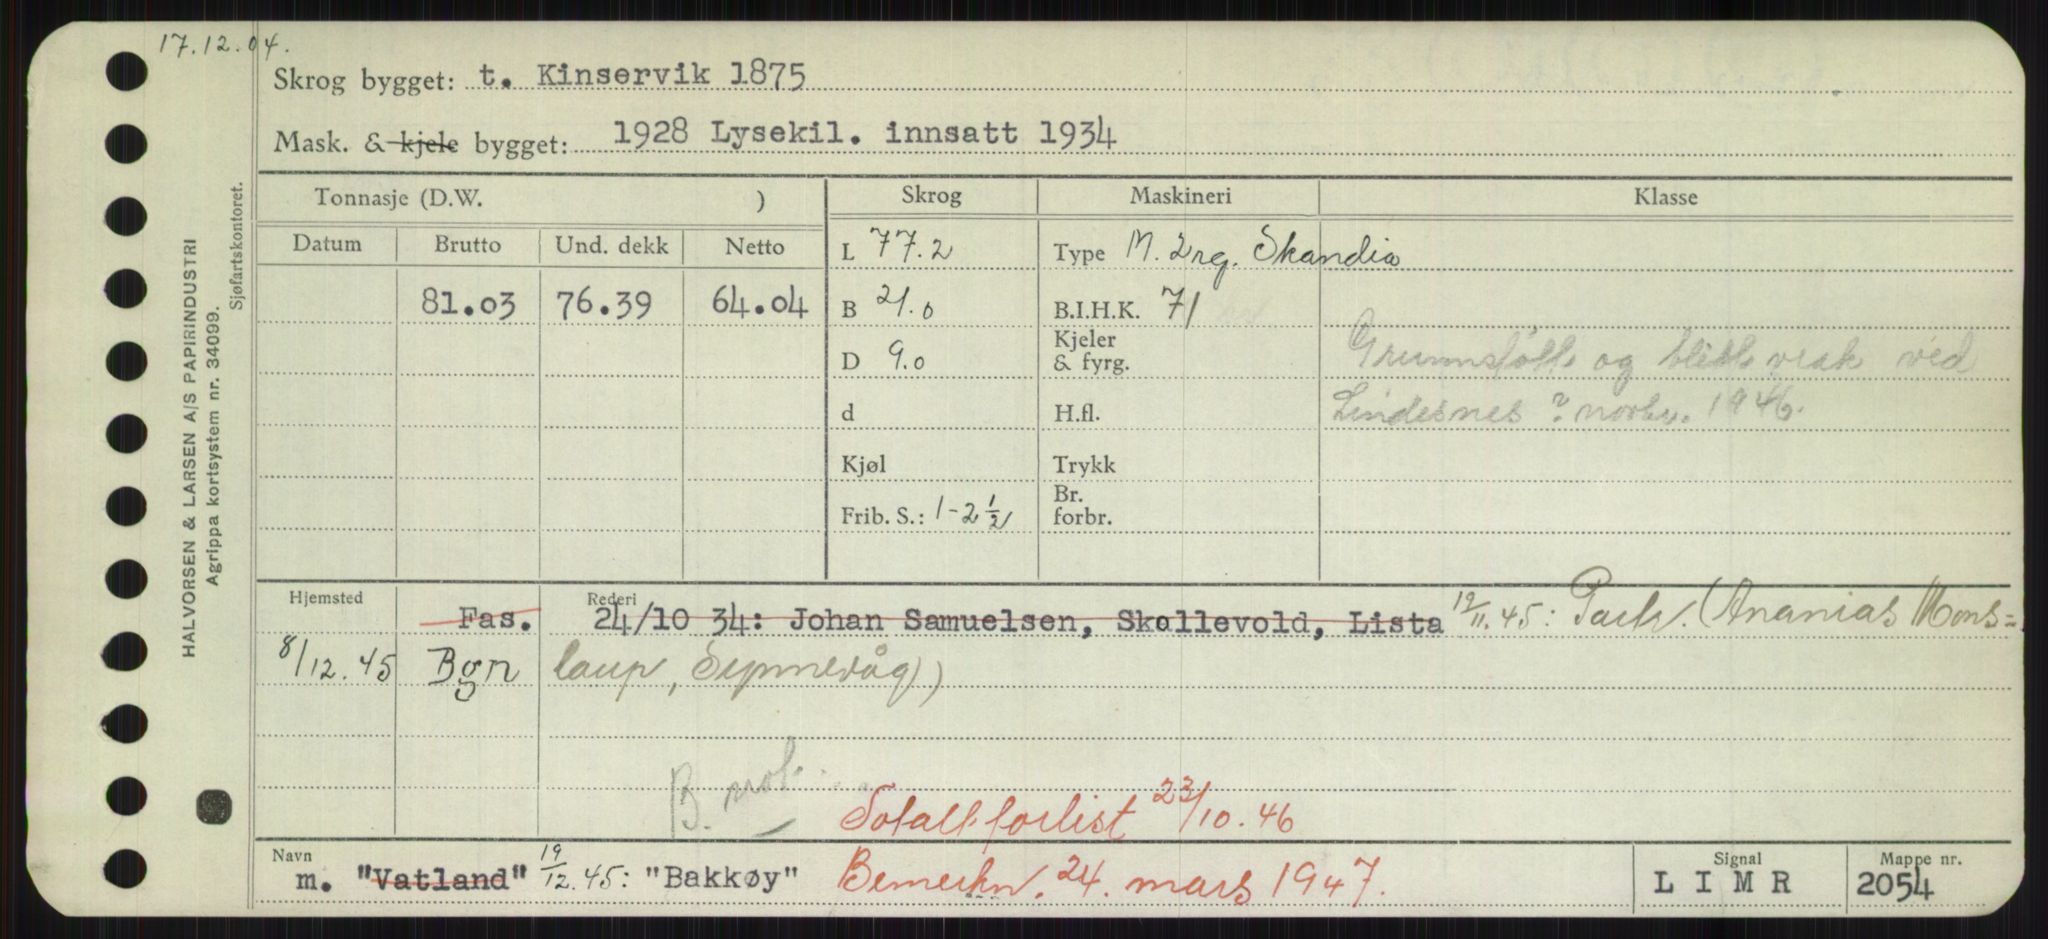 17.12.04.
Skrog bygget: t. Kinservik 1875
Mask. & kjele bygget: 1928 Lysekil. innsatt 1934
Tonnasje (D.W. ) Skrog Maskineri Klasse
Datum Brutto Und. dekk Netto L 77.2 Type M. 2rg. Skandia
81.03 76.39 64.04 B 21.0 B.I.H.K. 71
D 9.0 Kjeler & fyrg. Grunnstøtt og blitt vrak ved
d H.fl. Lindesnes ? novbr. 1946.
Kjøl Trykk
Frib. S.: 1-2 1/2 Br. forbr.
Hjemsted Rederi
Fas. 24/10 34: Johan Samuelsen, Skollevold, Lista 19/11.45: Partr. (Ananias Mons=
8/12.45 Bgn laup, Synnevåg)
B. not.
Totalt forlist 23/10.46
Navn Signal Mappe nr.
m. "Vatland" 19/12.45: "Bakkøy" Bemerkn. 24. mars 1947. L I M R 2054
HALVORSEN & LARSEN A/S PAPIRINDUSTRI
Agrippa kortsystem nr. 34099.
Sjøfartskontoret.